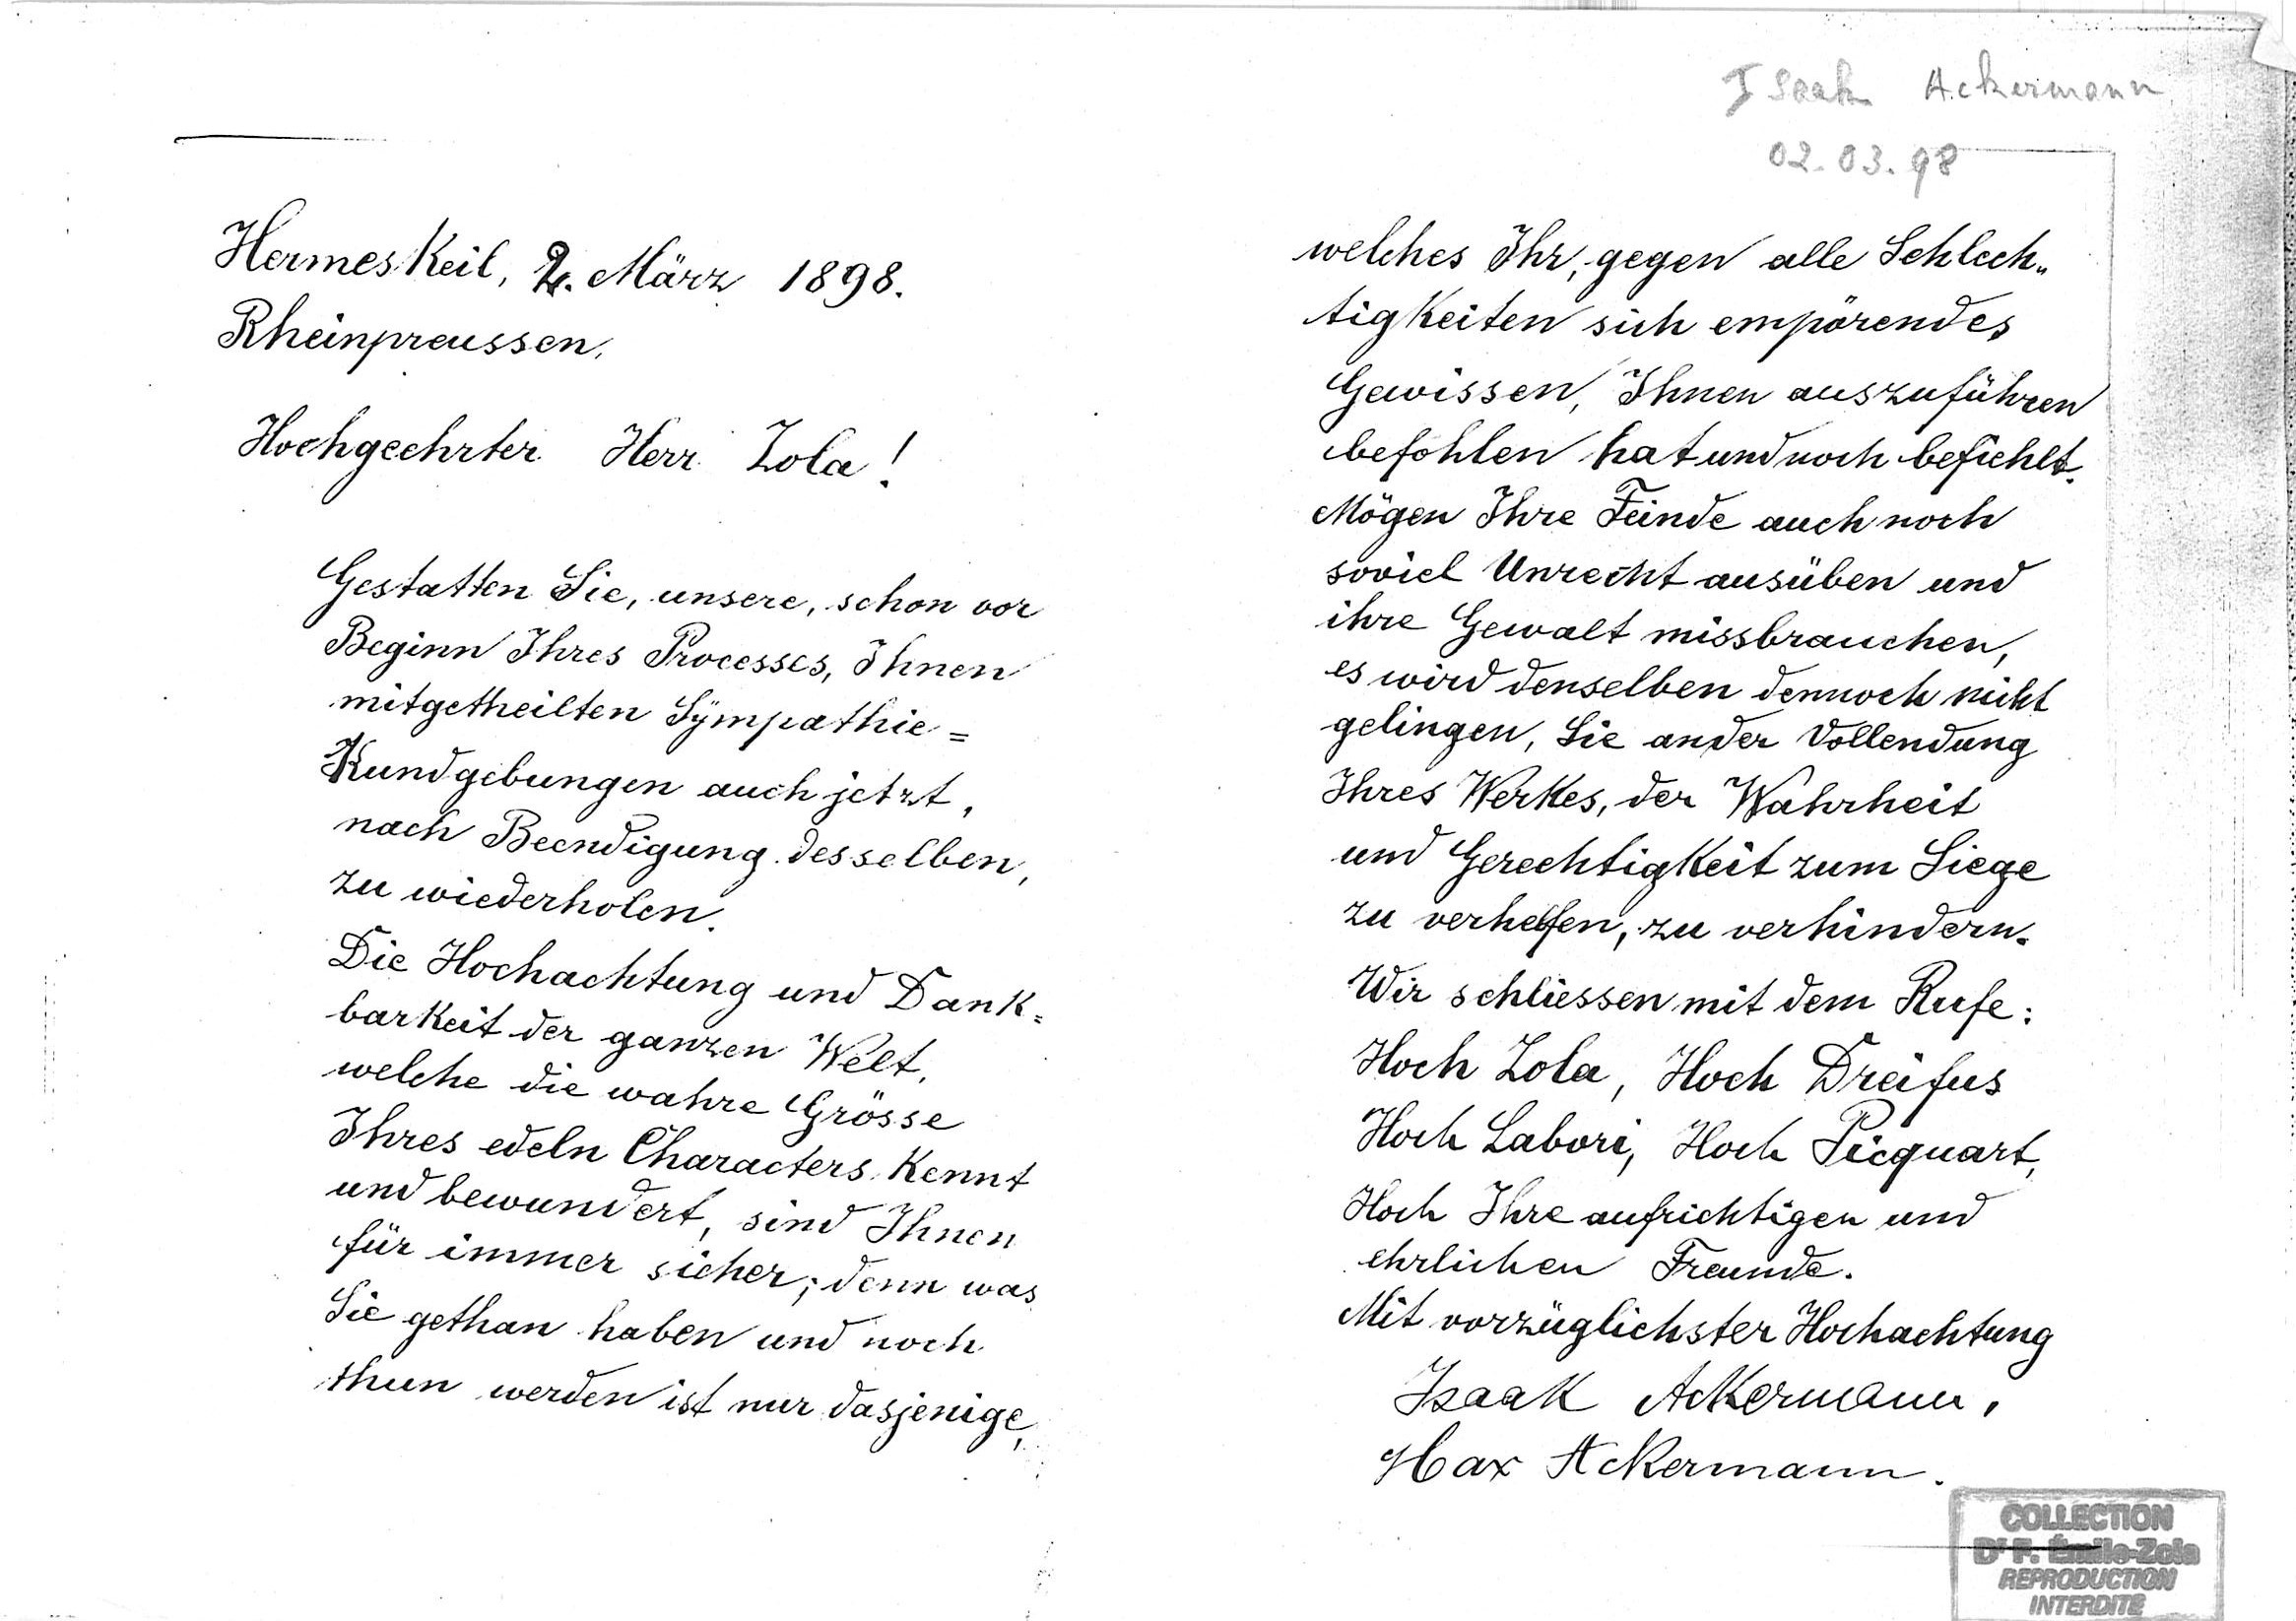 Hermeskeil, 2. März 1898.
Rheinpreussen.
Hochgeehrter Herr Zola!
Gestatten Sie, unsere, schon vor
Beginn Ihres Processes, Ihnen
mitgetheilten Sympathie=
Kundgebungen auch jetzt,
nach Beendigung desselben,
zu wiederholen.
Die Hochachtung und Dank=
barkeit der ganzen Welt,
welche die wahre Grösse
Ihres edeln Characters kennt
und bewundert, sind Ihnen
für immer sicher; denn was
Sie gethan haben und noch
thun werden ist nur dasjenige,
Isaak Ackermann
02.03.98
welches Ihr, gegen alle Schlech„
tigkeiten sich empörendes
Gewissen, Ihnen auszuführen
befohlen hat und noch befiehlt.
Mögen Ihre Feinde auch noch
soviel Unrecht ausüben und
ihre Gewalt missbrauchen,
es wird denselben dennoch nicht
gelingen, Sie an der Vollendung
Ihres Werkes, der Wahrheit
und Gerechtigkeit zum Siege
zu verhelfen, zu verhindern.
Wir schliessen mit dem Rufe:
Hoch Zola, Hoch Dreifus
Hoch Labori, Hoch Picquart,
Hoch Ihre aufrichtigen und
ehrlichen Freunde.
Mit vorzüglichster Hochachtung
Isaak Ackermann,
Max Ackermann.
COLLECTION
Dr F. Émile-Zola
REPRODUCTION
INTERDITE